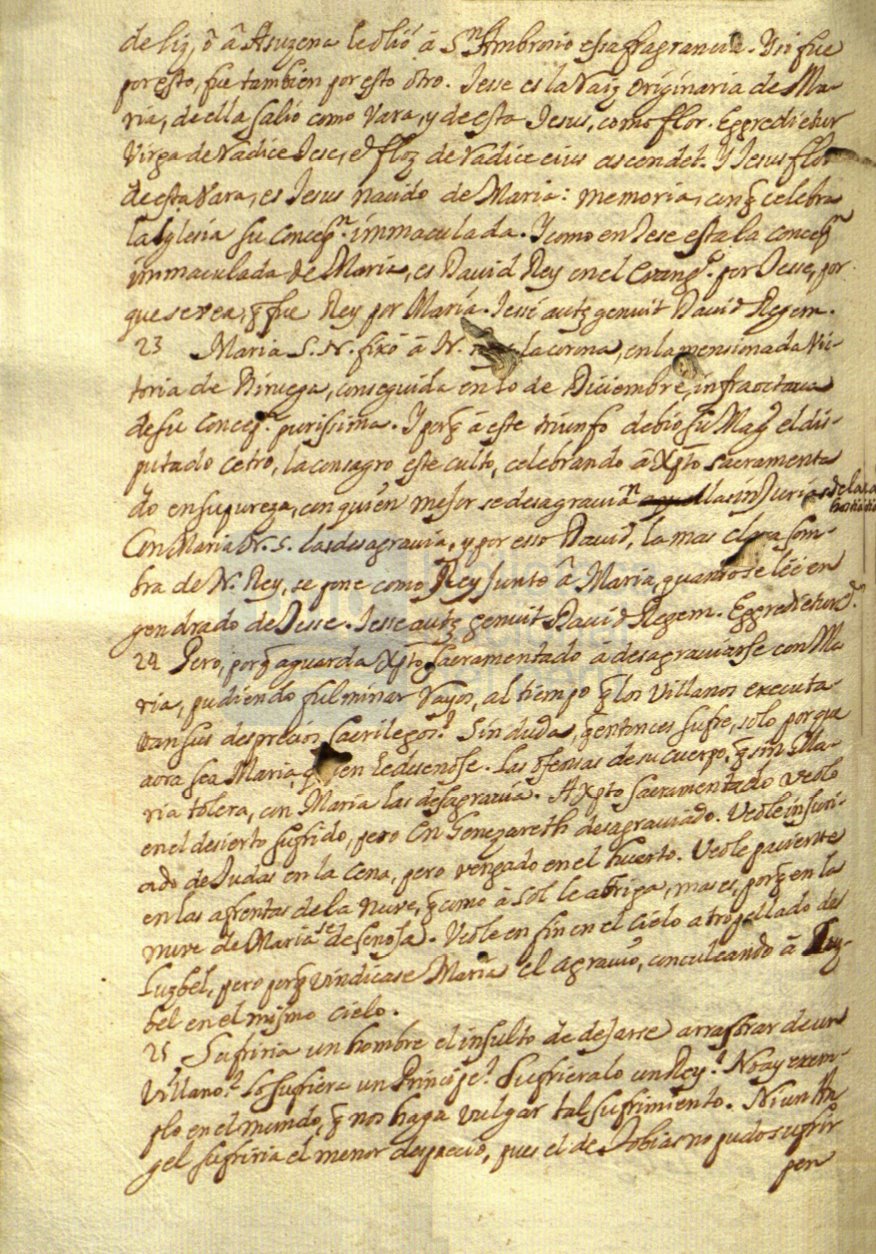 de liz, ô â Asuzena le olió â Sn. Ambrosio essa fragrancia. Y si fue
por esto, fue tambien por esto otro. Iesse es la raiz originaria de Ma-
ria, de ella salió como vara, y de esta Iesus, como flor. Eggredietur
virga de radice Iese, et floz de radice eius ascendet. Y Iesus flor
de esta vara, es Iesus nacido de Maria: memoria, con q̃ celebra
la Iglesia su Concepn. immaculada. Y como en Iese esta la concepn.
immaculada de Maria, es David Rey en el Evango. por Iesse, por
que se vea, q̃ fue Rey por María. Iessé autẽ genuit David Regem.
23 Maria S. N. fixó â N. la corona, en la mensionada Vic-
toria de Biruega, conseguida en 10 de Diciembre, infraoctava
de su Concepn. purissima. Y porq̃ â este triunfo debió su Magd. el dis-
putado cetro, la consagro este culto, celebrando â Xpto sacramenta
do en su pureza, con quien mejor se desagravian las injurias de la
Con Maria N. S. las desagravia, y por esso David, la mas clara som-
bra de N. Rey, se pone como Rey junto â Maria, quando se leé en
gendrado de Iesse. Iesse autẽ genuit David Regem. Eggredietur &.
24 Pero, porq̃ aguarda Xpto sacramentado a desagraviarse con Ma
ria, pudiendo fulminar rayos, al tiempo q̃ los villanos executa-
van sus desprecios sacrilegos? Sin duda, q̃ entonces sufre, solo porque
aora sea Maria, quien le desenoje. Las ofensas de su cuerpo, q̃ sin Ma-
ria tolera, con Maria las desagravia. A Xpto sacramentado veole
en el desierto sufrido, pero en Genezareth desagraviado. Veole injuri-
ado de Iudas en la cena, pero vengado en el huerto. Veole paciente
en las afrentas de la nuve, q̃ como â sol le abriga, mas es, porq̃ en la
nuve de Maria se desenoja. Veole en fin en el cielo atropellado de
Luzbel, pero porq̃ vindicase Maria el agravio, conculcando â Luz-
bel en el mismo cielo.
25 Sufriria un hombre el insulto de dejarse arrastrar de un
villano? Lo sufriera un Principe? Sufrieralo un Rey? No ay exem-
plo en el mundo, q̃ nos haga vulgar tal sufrimiento. Ni un An
gel sufriria el menor desprecio, pues el de Tobias no pudo sufrir
per